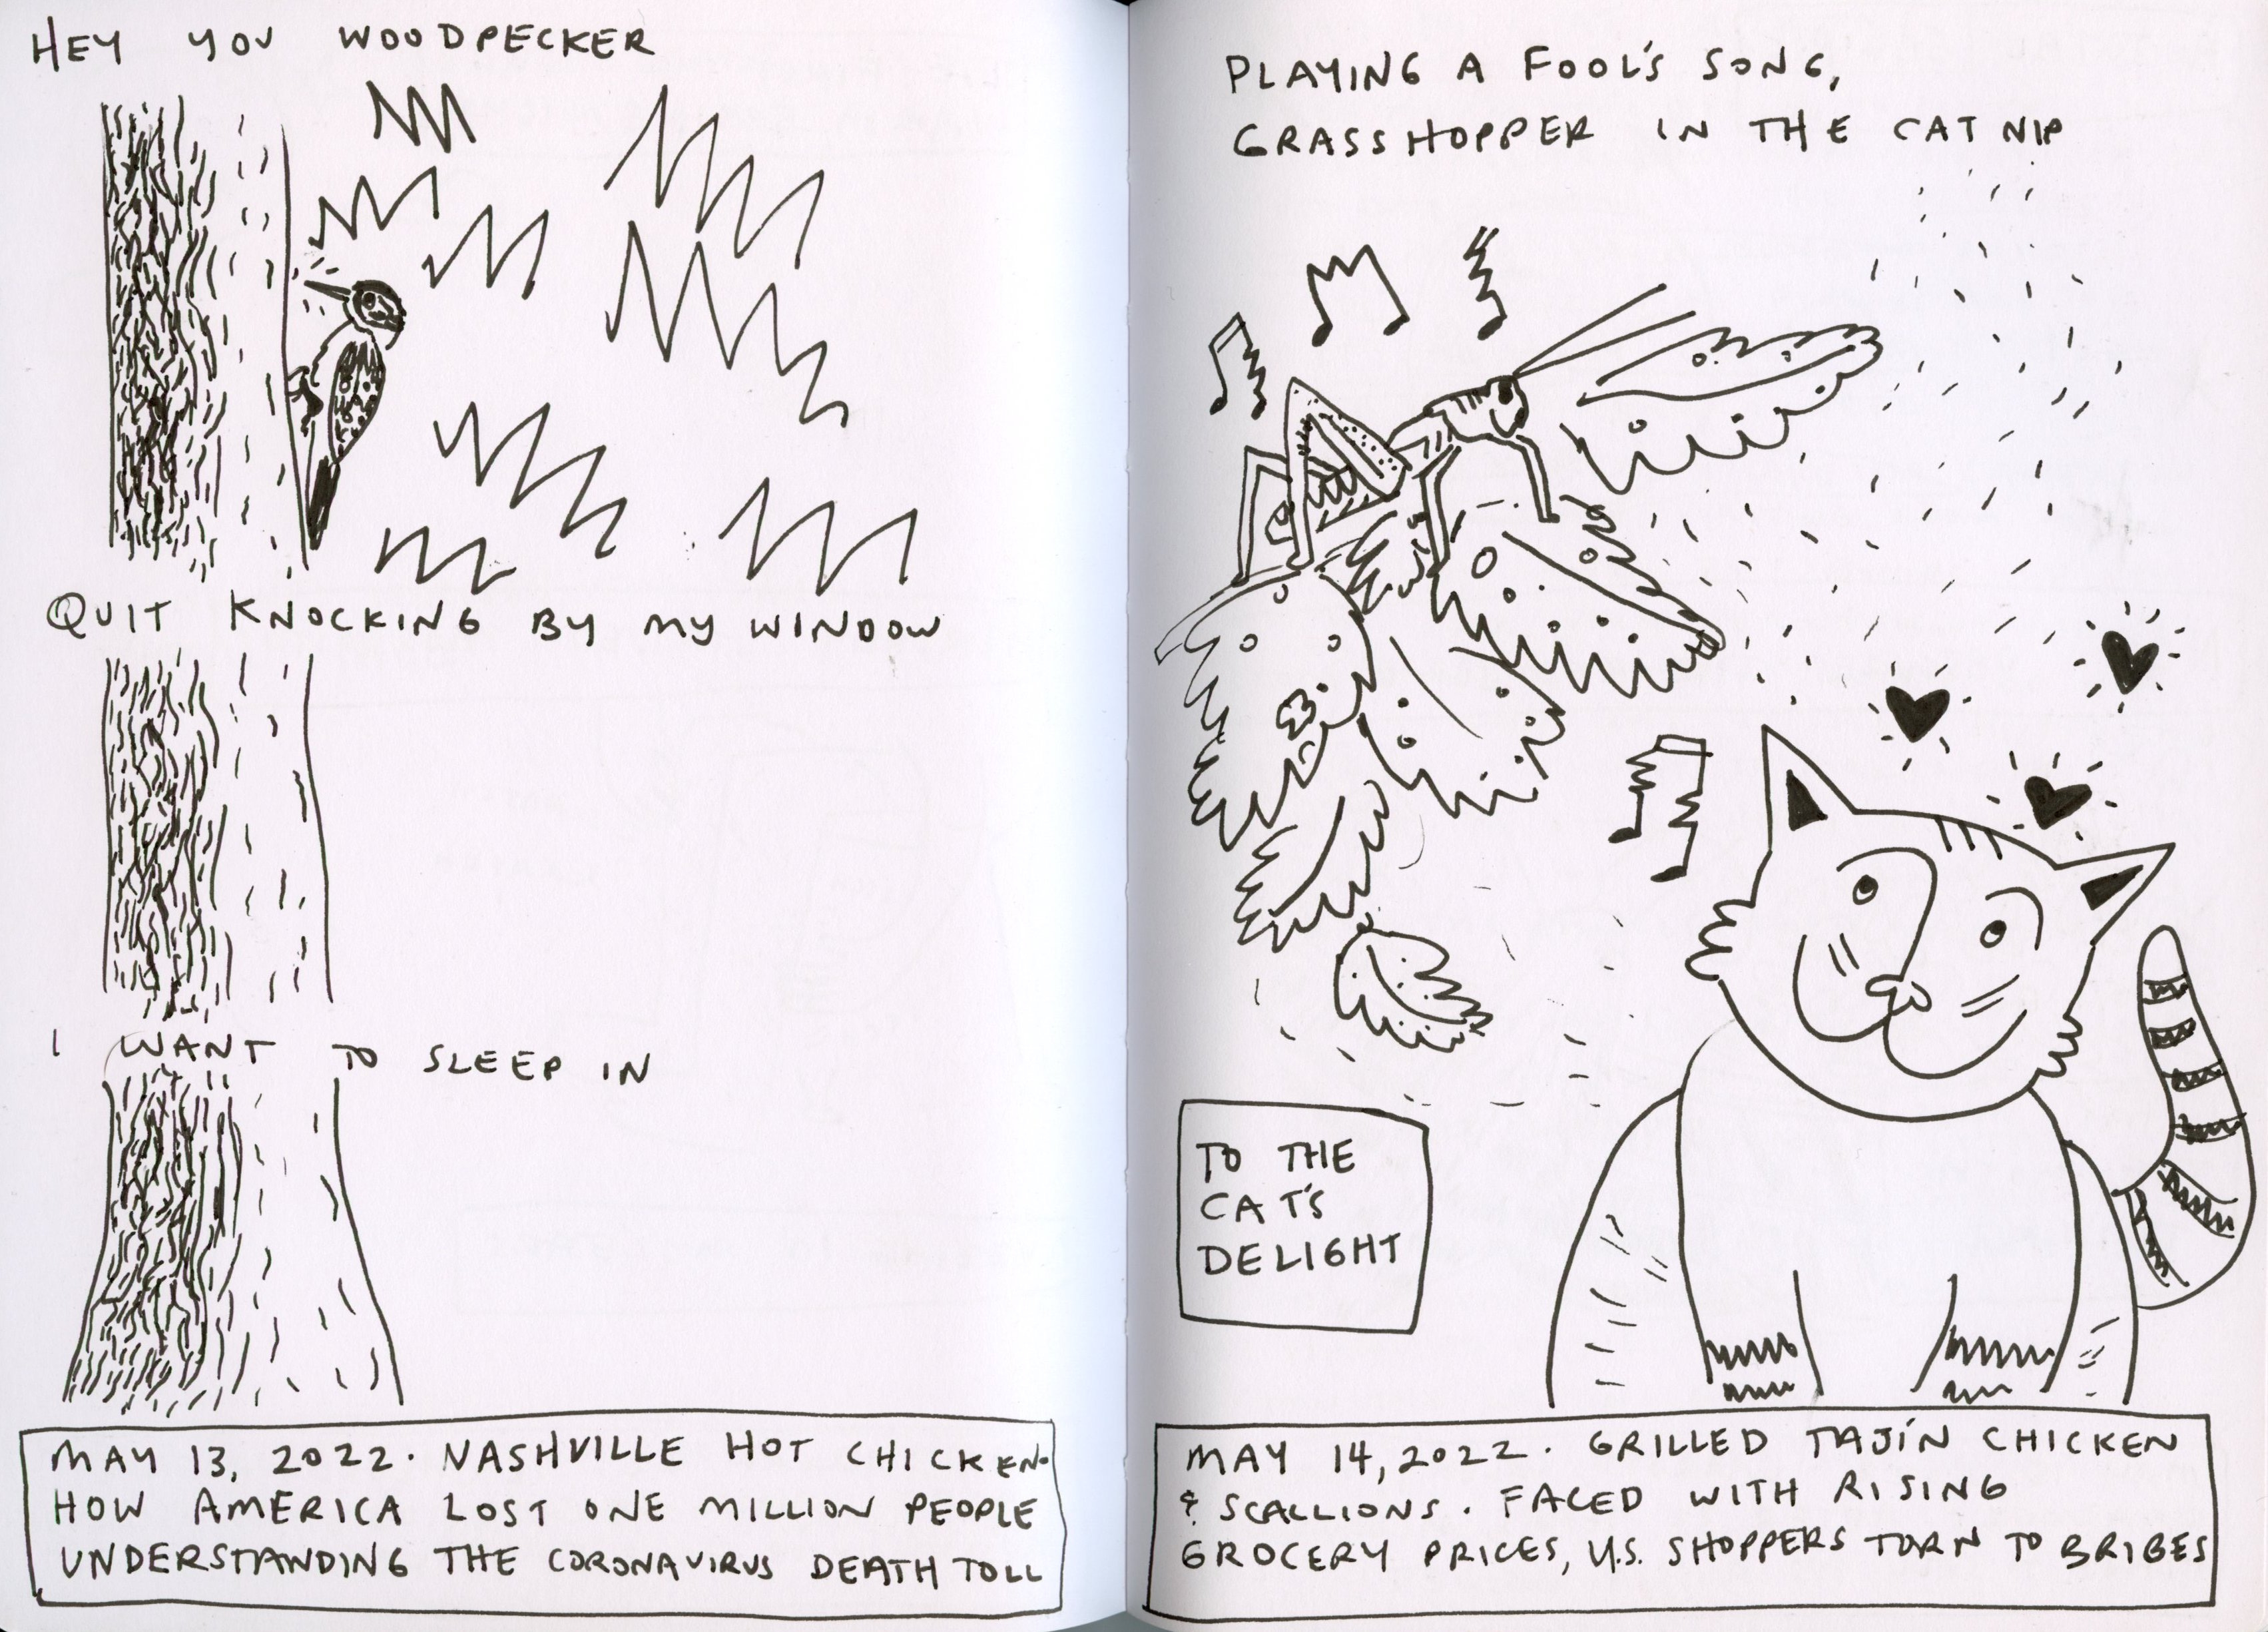 HEY YOU WOODPECKER
QUIT KNOCKING BY MY WINDOW
I WANT TO SLEEP IN
MAY 13, 2022. NASHVILLE HOT CHICKEN.
HOW AMERICA LOST ONE MILLION PEOPLE
UNDERSTANDING THE CORONAVIRUS DEATH TOLL
PLAYING A FOOL'S SONG,
GRASSHOPPER IN THE CATNIP
TO THE
CAT'S
DELIGHT
MAY 14, 2022. GRILLED TAJÍN CHICKEN
& SCALLIONS. FACED WITH RISING
GROCERY PRICES, U.S. SHOPPERS TORN TO BRIBES